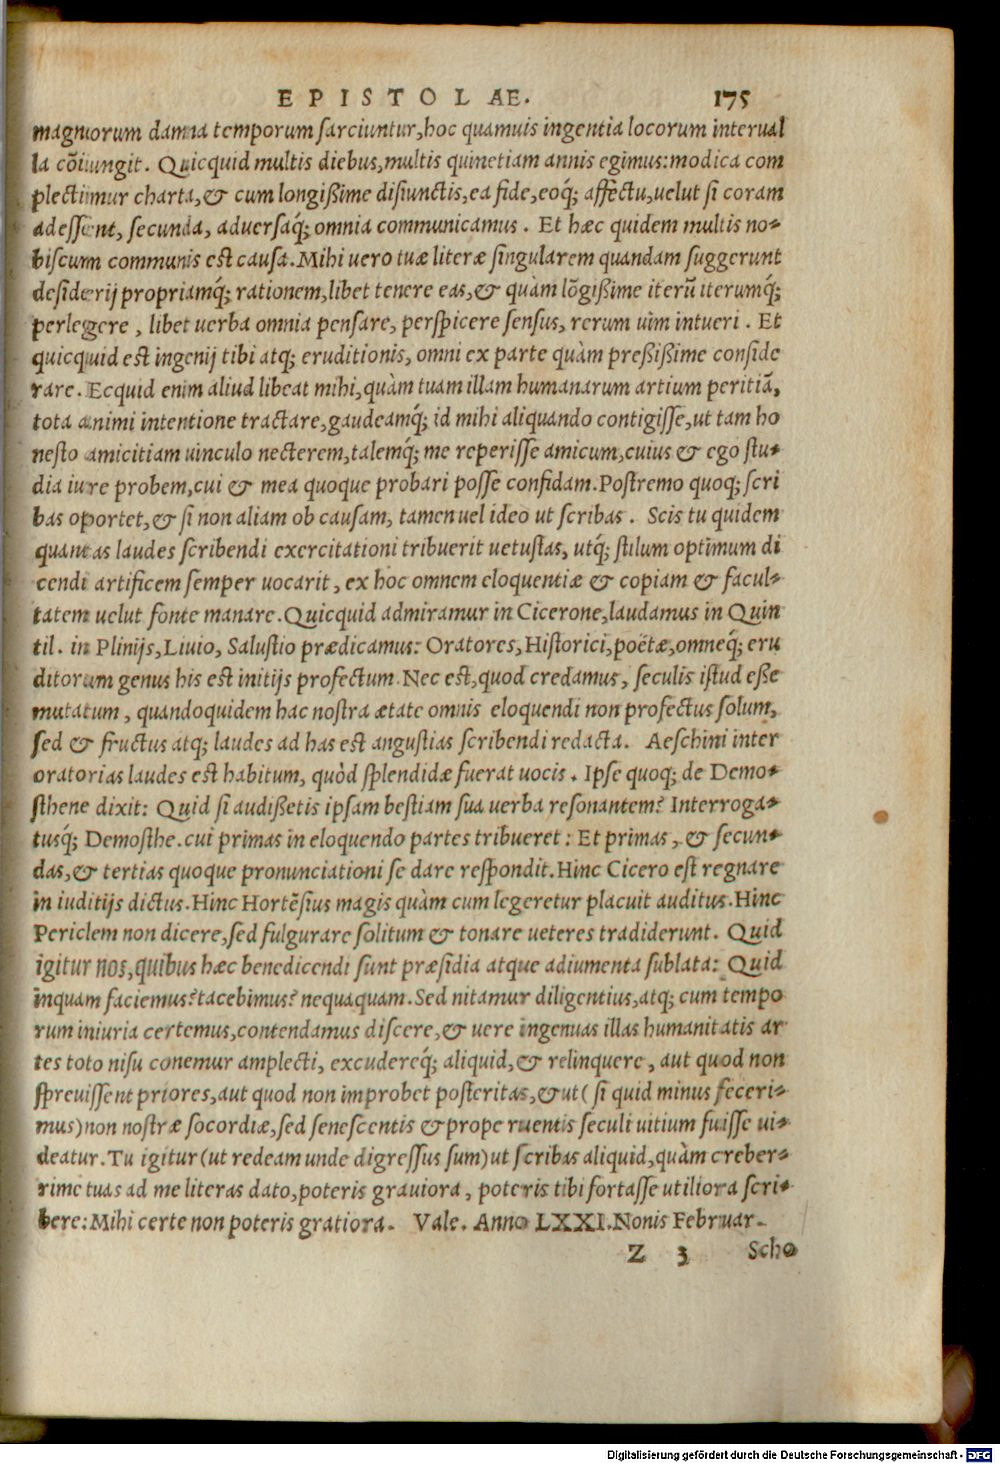 EPISTOLAE. 175
magnorum damna temporum sarciuntur, hoc quamuis ingentia locorum interual
la cōiungit. Quicquid multis diebus, multis quinetiam annis egimus: modica com
plectimur charta, & cum longißime disiunctis, ea fide, eoq́; affectu, uelut si coram
adessent, secunda, aduersaq́; omnia communicamus. Et hæc quidem multis no-
biscum communis est causa. Mihi uero tuæ literæ singularem quandam suggerunt
desiderij propriamq́; rationem, libet tenere eas, & quàm lōgißime iterū iterumq́;
perlegere, libet uerba omnia pensare, perspicere sensus, rerum uim intueri. Et
quicquid est ingenij tibi atq; eruditionis, omni ex parte quàm preßißime conside
rare. Ecquid enim aliud libeat mihi, quàm tuam illam humanarum artium peritiā,
tota animi intentione tractare, gaudeamq́; id mihi aliquando contigisse, ut tam ho
nesto amicitiam uinculo necterem, talemq́; me reperisse amicum, cuius & ego stu-
dia iure probem, cui & mea quoque probari posse confidam. Postremo quoq; scri
bas oportet, & si non aliam ob causam, tamen uel ideo ut scribas. Scis tu quidem
quantas laudes scribendi exercitationi tribuerit uetustas, utq́; stilum optimum di
cendi artificem semper uocarit, ex hoc omnem eloquentiæ & copiam & facul-
tatem uelut fonte manare. Quicquid admiramur in Cicerone, laudamus in Quin
til. in Plinijs, Liuio, Salustio prædicamus: Oratores, Historici, poëtæ, omneq́; eru
ditorum genus his est initijs profectum. Nec est, quod credamus, seculis istud eße
mutatum, quandoquidem hac nostra ætate omnis eloquendi non profectus solum,
sed & fructus atq; laudes ad has est angustias scribendi redacta. Aeschini inter
oratorias laudes est habitum, quòd splendidæ fuerat uocis. Ipse quoq; de Demo-
sthene dixit: Quid si audißetis ipsam bestiam sua uerba resonantem? Interroga-
tusq́; Demosthe. cui primas in eloquendo partes tribueret: Et primas, & secun-
das, & tertias quoque pronunciationi se dare respondit. Hinc Cicero est regnare
in iuditijs dictus. Hinc Hortēsius magis quàm cum legeretur placuit auditus. Hinc
Periclem non dicere, sed fulgurare solitum & tonare ueteres tradiderunt. Quid
igitur nos, quibus hæc benedicendi sunt præsidia atque adiumenta sublata: Quid
inquam faciemus? tacebimus? nequaquam. Sed nitamur diligentius, atq; cum tempo
rum iniuria certemus, contendamus discere, & uere ingenuas illas humanitatis ar
tes toto nisu conemur amplecti, excudereq́; aliquid, & relinquere, aut quod non
spreuissent priores, aut quod non improbet posteritas, & ut (si quid minus feceri-
mus) non nostræ socordiæ, sed senescentis & prope ruentis seculi uitium fuisse ui-
deatur. Tu igitur (ut redeam unde digressus sum) ut scribas aliquid, quàm creber-
rime tuas ad me literas dato, poteris grauiora, poteris tibi fortasse utiliora scri-
bere: Mihi certe non poteris gratiora. Vale. Anno LXXI. Nonis Februar.
Z 3 Scho
Digitalisierung gefördert durch die Deutsche Forschungsgemeinschaft - DFG